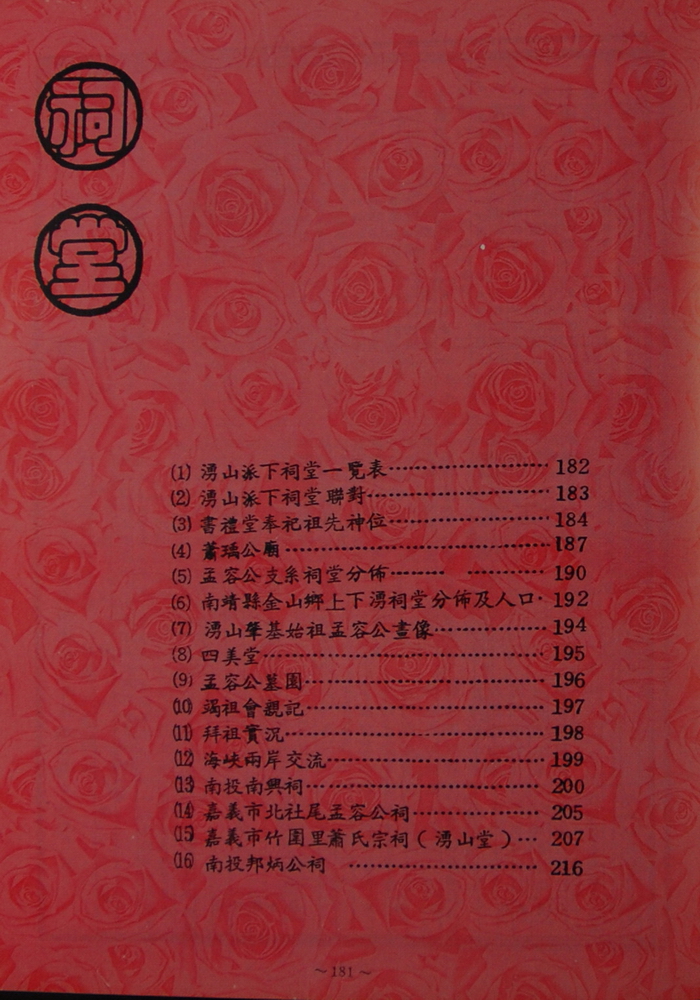 祠
堂
(1) 湧山派下祠堂一覽表 182
(2) 湧山派下祠堂聯對 183
(3) 書禮堂奉祀祖先神位 184
(4) 蕭瑀公廟 187
(5) 孟容公支系祠堂分佈 190
(6) 南靖縣金山鄉上下湧祠堂分佈及人口 192
(7) 湧山肇基始祖孟容公畫像 194
(8) 四美堂 195
(9) 孟容公墓園 196
(10) 謁祖會親記 197
(11) 拜祖實況 198
(12) 海峽兩岸交流 199
(13) 南投南興祠 200
(14) 嘉義市北社尾孟容公祠 205
(15) 嘉義市竹圍里蕭氏宗祠(湧山堂) 207
(16) 南投邦炳公祠 216
~181~